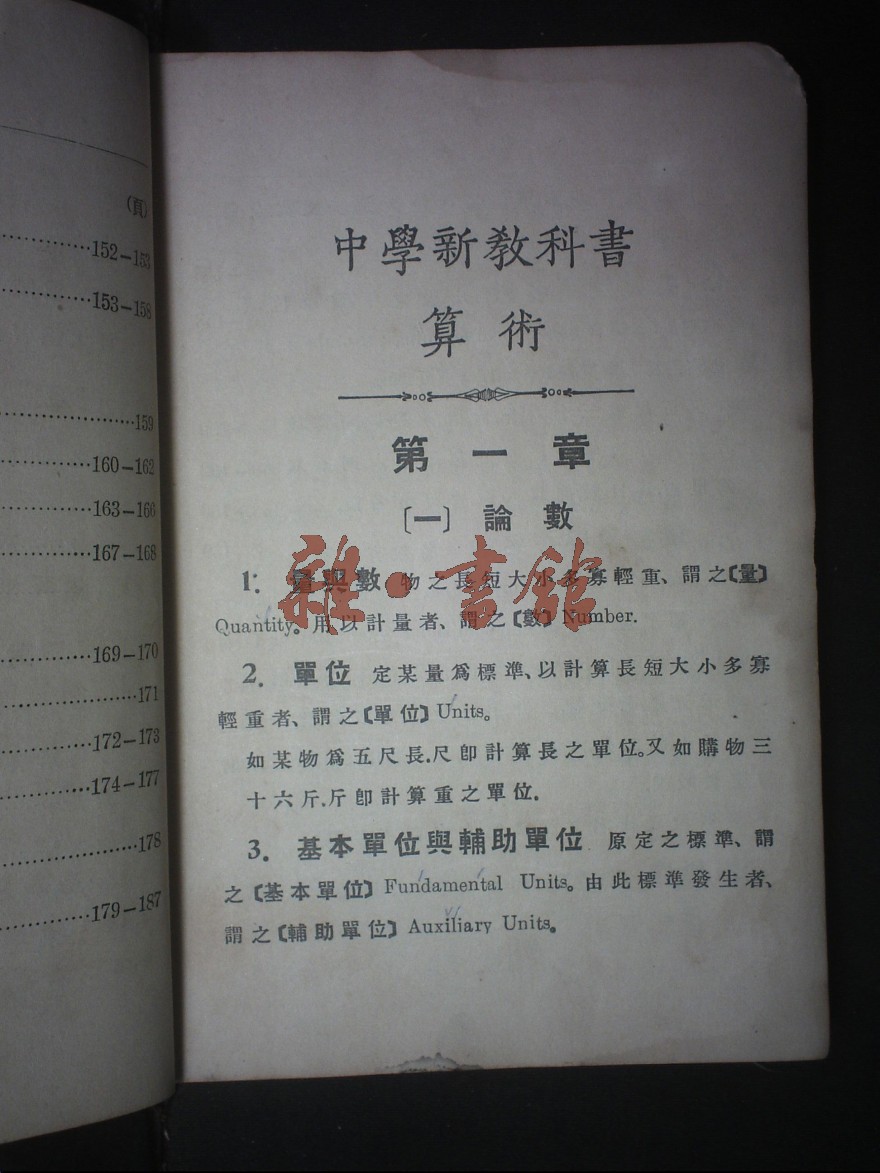 (頁)
152–153
153–158
159
160–162
163–166
167–168
169–170
171
172–173
174–177
178
179–187
中學新教科書
算術
第一章
〔一〕 論數
1. 量與數 物之長短大小多寡輕重、謂之〔量〕
Quantity。用以計量者、謂之〔數〕Number.
2. 單位 定某量爲標準、以計算長短大小多寡
輕重者、謂之〔單位〕Units。
如某物爲五尺長.尺卽計算長之單位。又如購物三
十六斤.斤卽計算重之單位.
3. 基本單位與輔助單位 原定之標準、謂
之〔基本單位〕Fundamental Units。由此標準發生者、
謂之〔輔助單位〕Auxiliary Units。
雜·書館